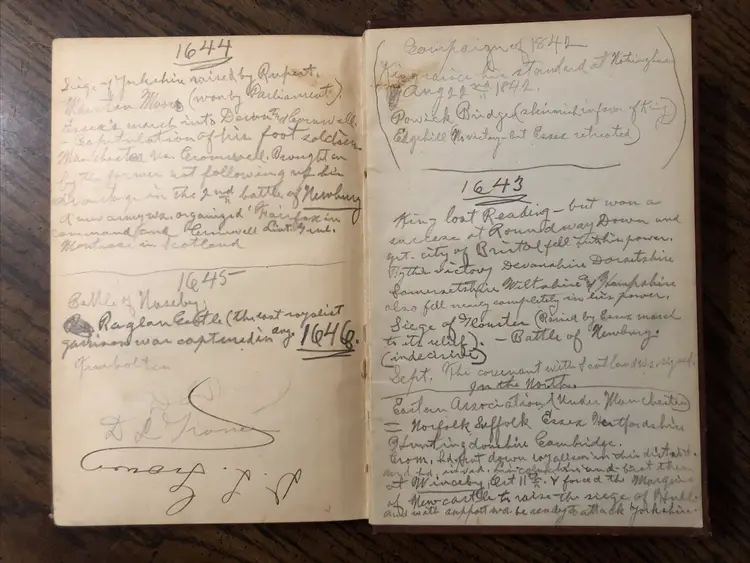 1644
Siege of Yorkshire raised by Rupert.
Marston Moor (won by Parliament).
Essex's march into Devon & Cornwall
- Capitulation of his foot soldiers
Manchester vs. Cromwell. Brought on
by the former not following up his
advantage in the 2nd battle of Newbury
A new army was organized Fairfax in
command and Cromwell Lieut. Genl.
Montrose in Scotland
1645
Battle of Naseby.
Raglan Castle (the last royalist
garrison was captured in Aug. 1646.
D L
D. L.
Campaign of 1842
King raises his standard at Nottingham
Aug 22nd 1842.
Powick Bridge (skirmish in favor of King)
Edgehill No victory - but Essex retreated)
1643
King lost Reading - but won a
success at Roundway Down and
get. city of Bristol fell into his power.
By the victory Devonshire Dorsetshire
Somersetshire Wiltshire & Hampshire
also fell nearly completely in his power.
Siege of Gloucester (Raised by Essex march
to its relief). - Battle of Newbury.
(indecisive)
Sept. The covenant with Scotland was signed.
In the North.
Eastern Association (Under Manchester)
= Norfolk Suffolk Essex Hertfordshire
Huntingdonshire Cambridge.
Crom. had put down royalism in this district
and had invaded Lincolnshire and beat them
at Winceby Oct 11th & forced the Marquis
of Newcastle to raise the siege of Hull
and with support was ready to attack Yorkshire.